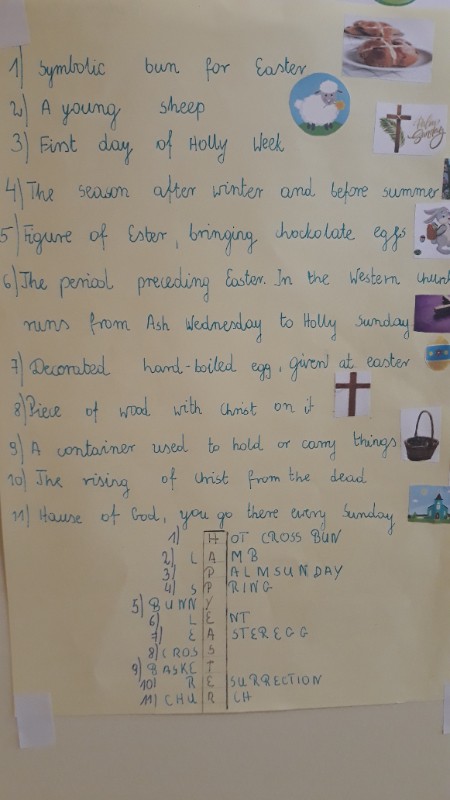 1) Symbolic bun for Easter
2) A young sheep
3) First day of Holly Week
4) The season after winter and before summer
5) Figure of Ester, bringing chockolate eggs
6) The period preceding Easter. In the Western church
runs from Ash Wednesday to Holly Sunday
7) Decorated hard-boiled egg, given at easter
8) Piece of wood with Christ on it
9) A container used to hold or carry things
10) The rising of Christ from the dead
11) Hause of God, you go there every Sunday
1) HOT CROSS BUN
2) LAMB
3) PALMSUNDAY
4) SPRING
5) BUNNY
6) LENT
7) EASTEREGG
8) CROSS
9) BASKET
10) RESURRECTION
11) CHURCH